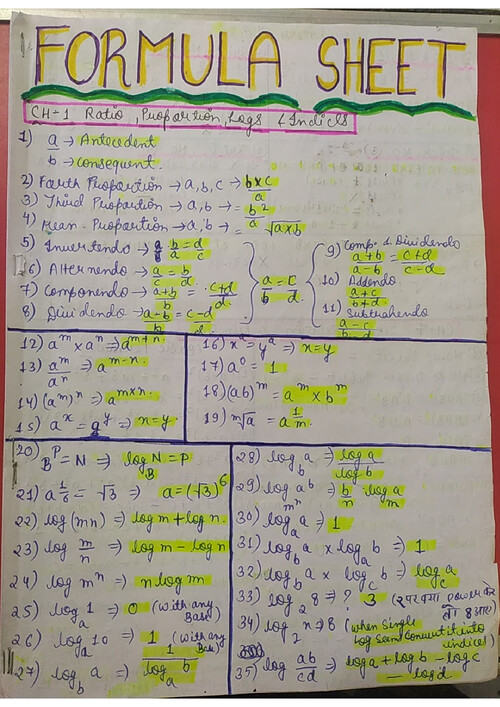 FORMULA SHEET
CH-1 Ratio, Proportion, Logs & Indices
1) a → Antecedent
b → consequent.
2) Fourth Proportion → a, b, c → b×c/a
3) Third Proportion → a, b → = b²/a
4) Mean - Proportion → a, b → = √a×b
5) Invertendo → b/a = d/c
6) Alternendo → a/c = b/d
7) Componendo → a+b/b = c+d/d
8) Dividendo → a-b/b = c-d/d
a/b = c/d
9) Comp. & Dividendo
a+b/a-b = c+d/c-d
10) Addendo
a+c/b+d
11) Subtrahendo
a-c/b-d
12) aᵐ × aⁿ ⇒ aᵐ⁺ⁿ
13) aᵐ/aⁿ ⇒ aᵐ⁻ⁿ
14) (aᵐ)ⁿ ⇒ aᵐˣⁿ
15) aˣ = aʸ ⇒ x=y
16) xᵃ = yᵃ ⇒ x=y
17) a⁰ = 1
18) (ab)ᵐ = aᵐ × bᵐ
19) ᵐ√a = a^1/m
20) Bᴾ = N ⇒ log_B N = P
21) a^1/6 = √3 ⇒ a = (√3)⁶
22) log (mn) ⇒ log m + log n.
23) log m/n ⇒ log m - log n
24) log mⁿ ⇒ n log m
25) log_a 1 ⇒ 0 (with any Base)
26) log_a 10 ⇒ 1 (with any Base)
27) log_b a ⇒ 1/log_a b
28) log_b a ⇒ log a/log b
29) log_mⁿ aᵇ ⇒ b/n log_m a
30) log_a a ⇒ 1
31) log_b a × log_a b ⇒ 1
32) log_b a × log_c b ⇒ log_c a
33) log_2 8 ⇒ ? 3 (2 पर क्या power करे तो 8 आए)
34) log_2 n ⇒ 8 (when single log sam convert it into indices)
35) log ab/cd ⇒ log a + log b - log c - log d